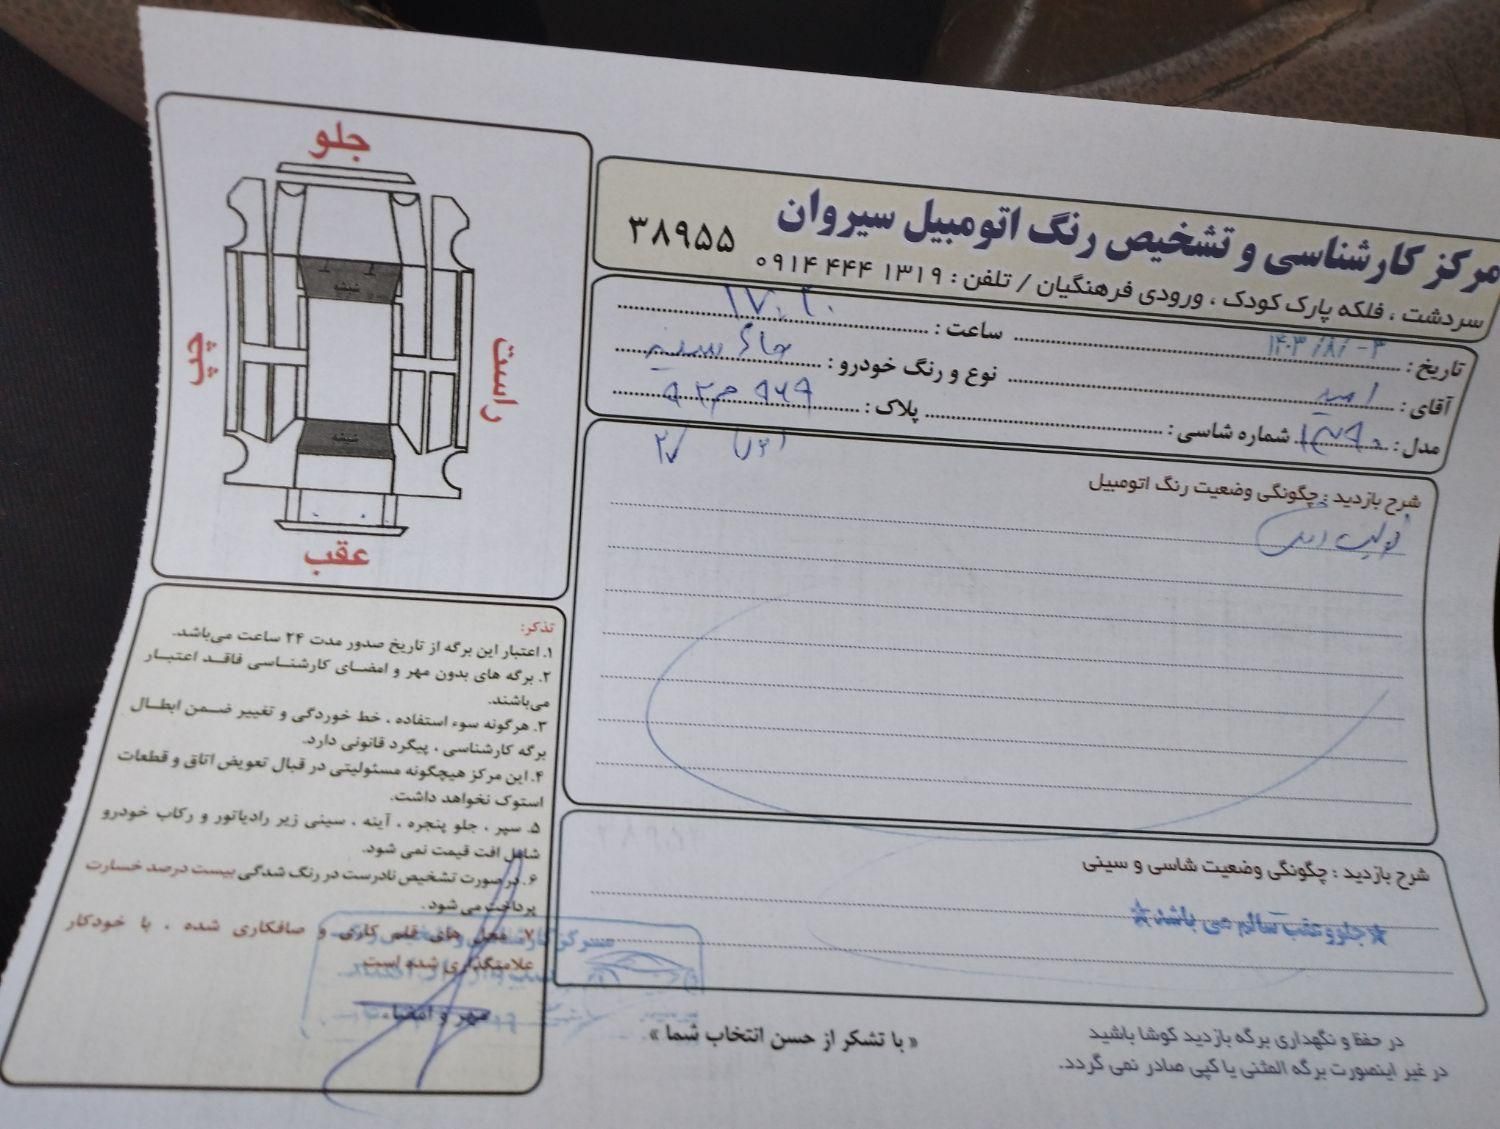 مرکز کارشناسی و تشخیص رنگ اتومبیل سیروان
۳۸۹۵۵
سردشت ، فلکه پارک کودک ، ورودی فرهنگیان / تلفن : ۱۳۱۹ ۴۴۴ ۰۹۱۴
تاریخ : ۱۴۰۳/۸/۰۳ ساعت : ۱۷:۲۰
آقای : امید نوع و رنگ خودرو :
مدل : ۱۳۹۰ شماره شاسی : پلاک : ۹۶۹ م ۹۲
شرح بازدید : چگونگی وضعیت رنگ اتومبیل
شرح بازدید : چگونگی وضعیت شاسی و سینی
*جلو و عقب سالم می باشد*
در حفظ و نگهداری برگه بازدید کوشا باشید
در غیر اینصورت برگه المثنی یا کپی صادر نمی گردد.
« با تشکر از حسن انتخاب شما »
جلو
چپ
راست
شیشه
شیشه
عقب
تذکر:
۱. اعتبار این برگه از تاریخ صدور مدت ۲۴ ساعت می‌باشد.
۲. برگه های بدون مهر و امضای کارشناسی فاقد اعتبار
می‌باشند.
۳. هرگونه سوء استفاده ، خط خوردگی و تغییر ضمن ابطال
برگه کارشناسی ، پیگرد قانونی دارد.
۴. این مرکز هیچگونه مسئولیتی در قبال تعویض اتاق و قطعات
استوک نخواهد داشت.
۵. سپر ، جلو پنجره ، آینه ، سینی زیر رادیاتور و رکاب خودرو
شامل افت قیمت نمی شود.
۶. در صورت تشخیص نادرست در رنگ شدگی بیست درصد خسارت
پرداخت می شود.
۷. محل های قلم کاری و صافکاری شده ، با خودکار
علامتگذاری شده است
مهر و امضاء